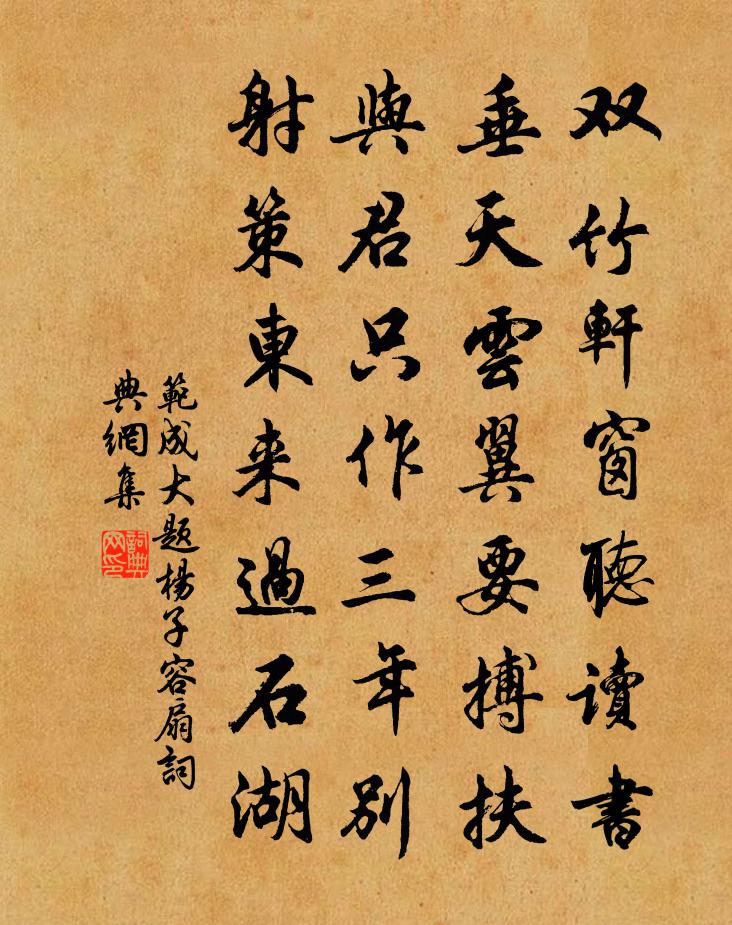 双竹軒窗聽讀書
垂天雲翼要搏扶
與君只作三年別
射策東来過石湖
範成大題楊子容扇詞
典網集
詞典網印